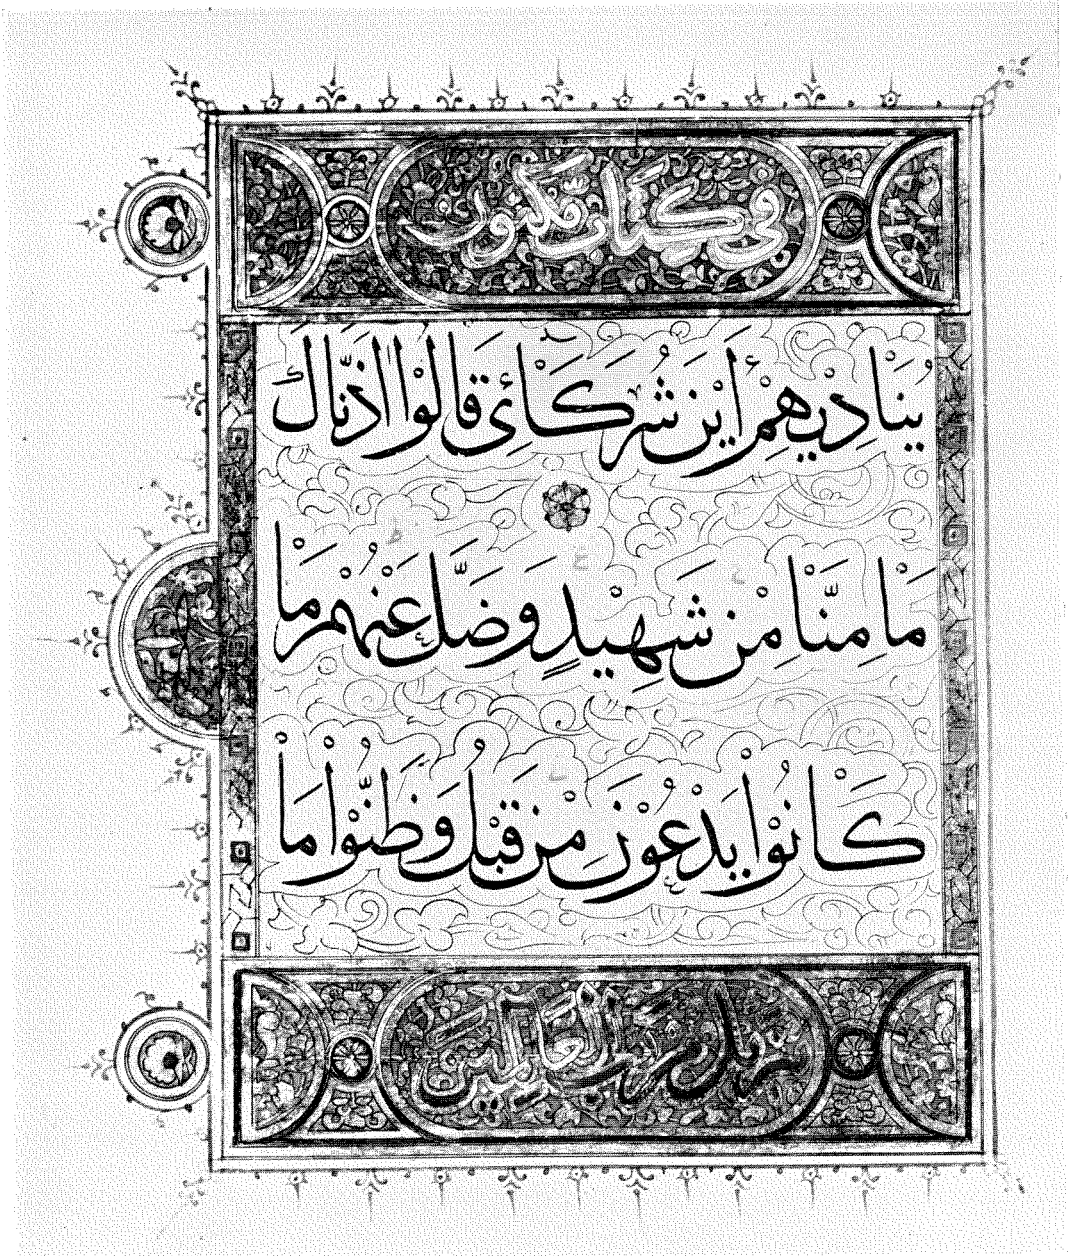 فى كتاب مكنون
يُنَادِيهِمْ أَيْنَ شُرَكَائِى قَالُوْا اذَنَّاكَ
مَا مِنَّا مِنْ شَهِيْدٍ وَضَلَّ عَنْهُمْ مَا
كَانُوْا يَدْعُوْنَ مِنْ قَبْلُ وَظَنُّوْا مَا
تنزيل من رب العالمين